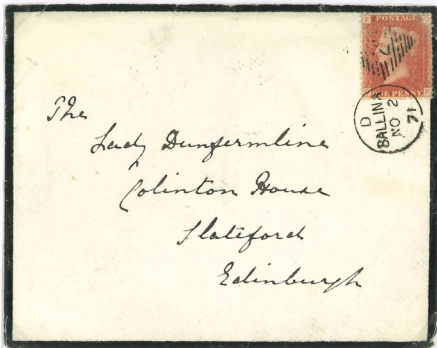 POSTAGE
ONE PENNY
D
BALLINA
NO 2
71
The
Lady Dunfermline
Colinton House
Slateford
Edinburgh